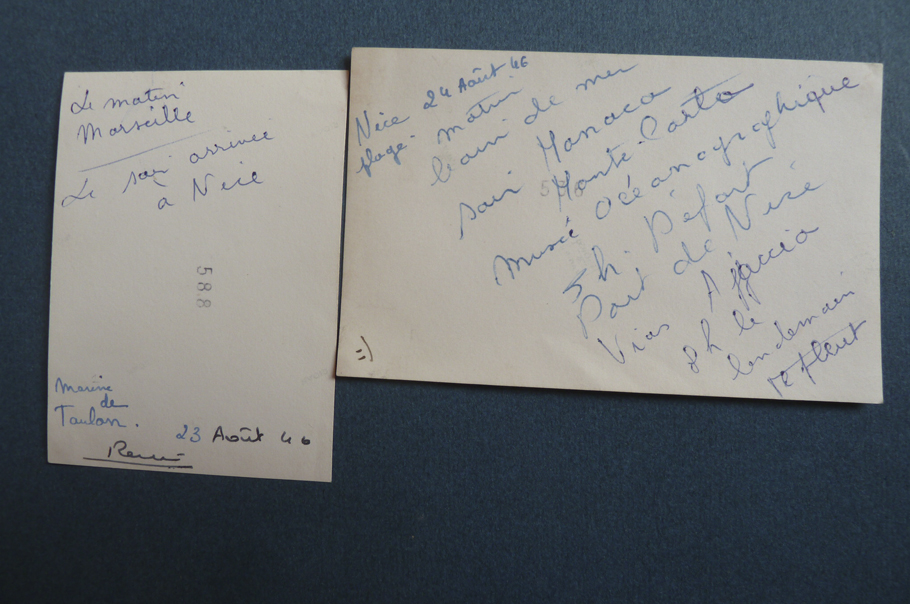 Le matin
Marseille
Le soir arrivée
à Nice
588
Marine
de
Toulon.
23 Août 46
Nice 24 Août 46
plage matin
bain de mer
soir Monaco
Monte-Carlo
Musée Océanographique
5h. Départ
Port de Nice
Vias Ajaccio
8h le
lendemain